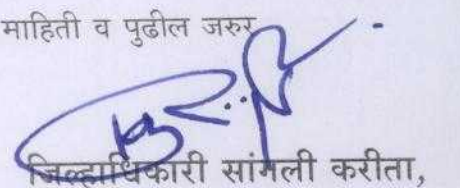 माहिती व पुढील जरुर
जिल्हाधिकारी सांगली करीता,